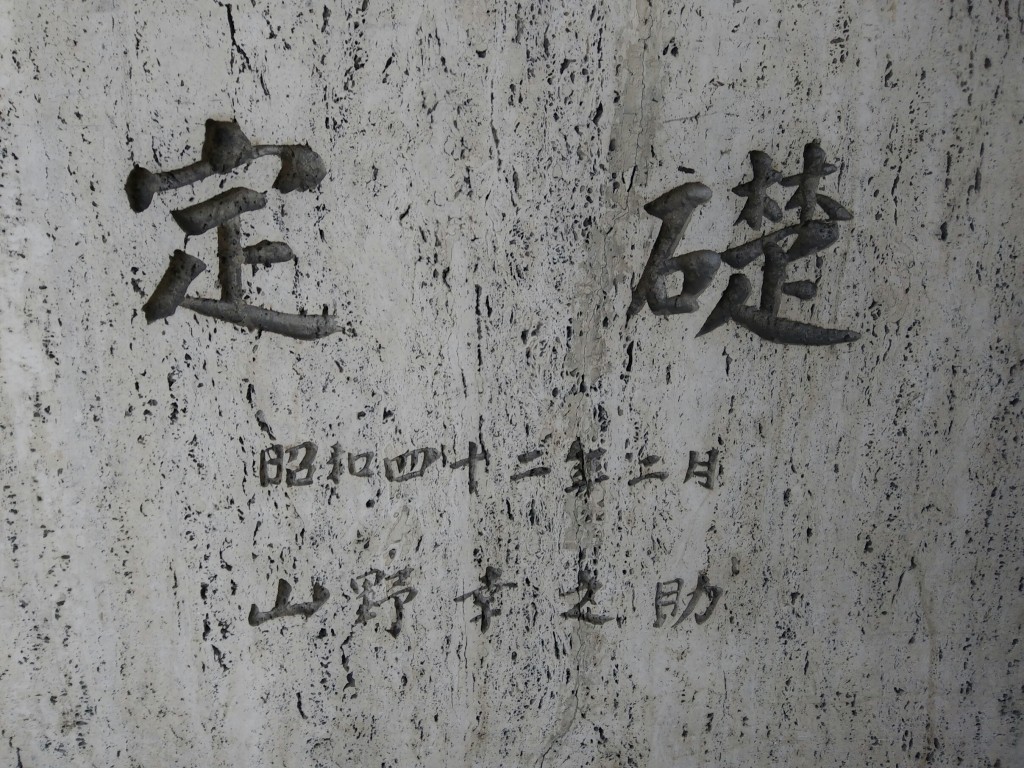 定礎
昭和四十二年二月
山野幸之助